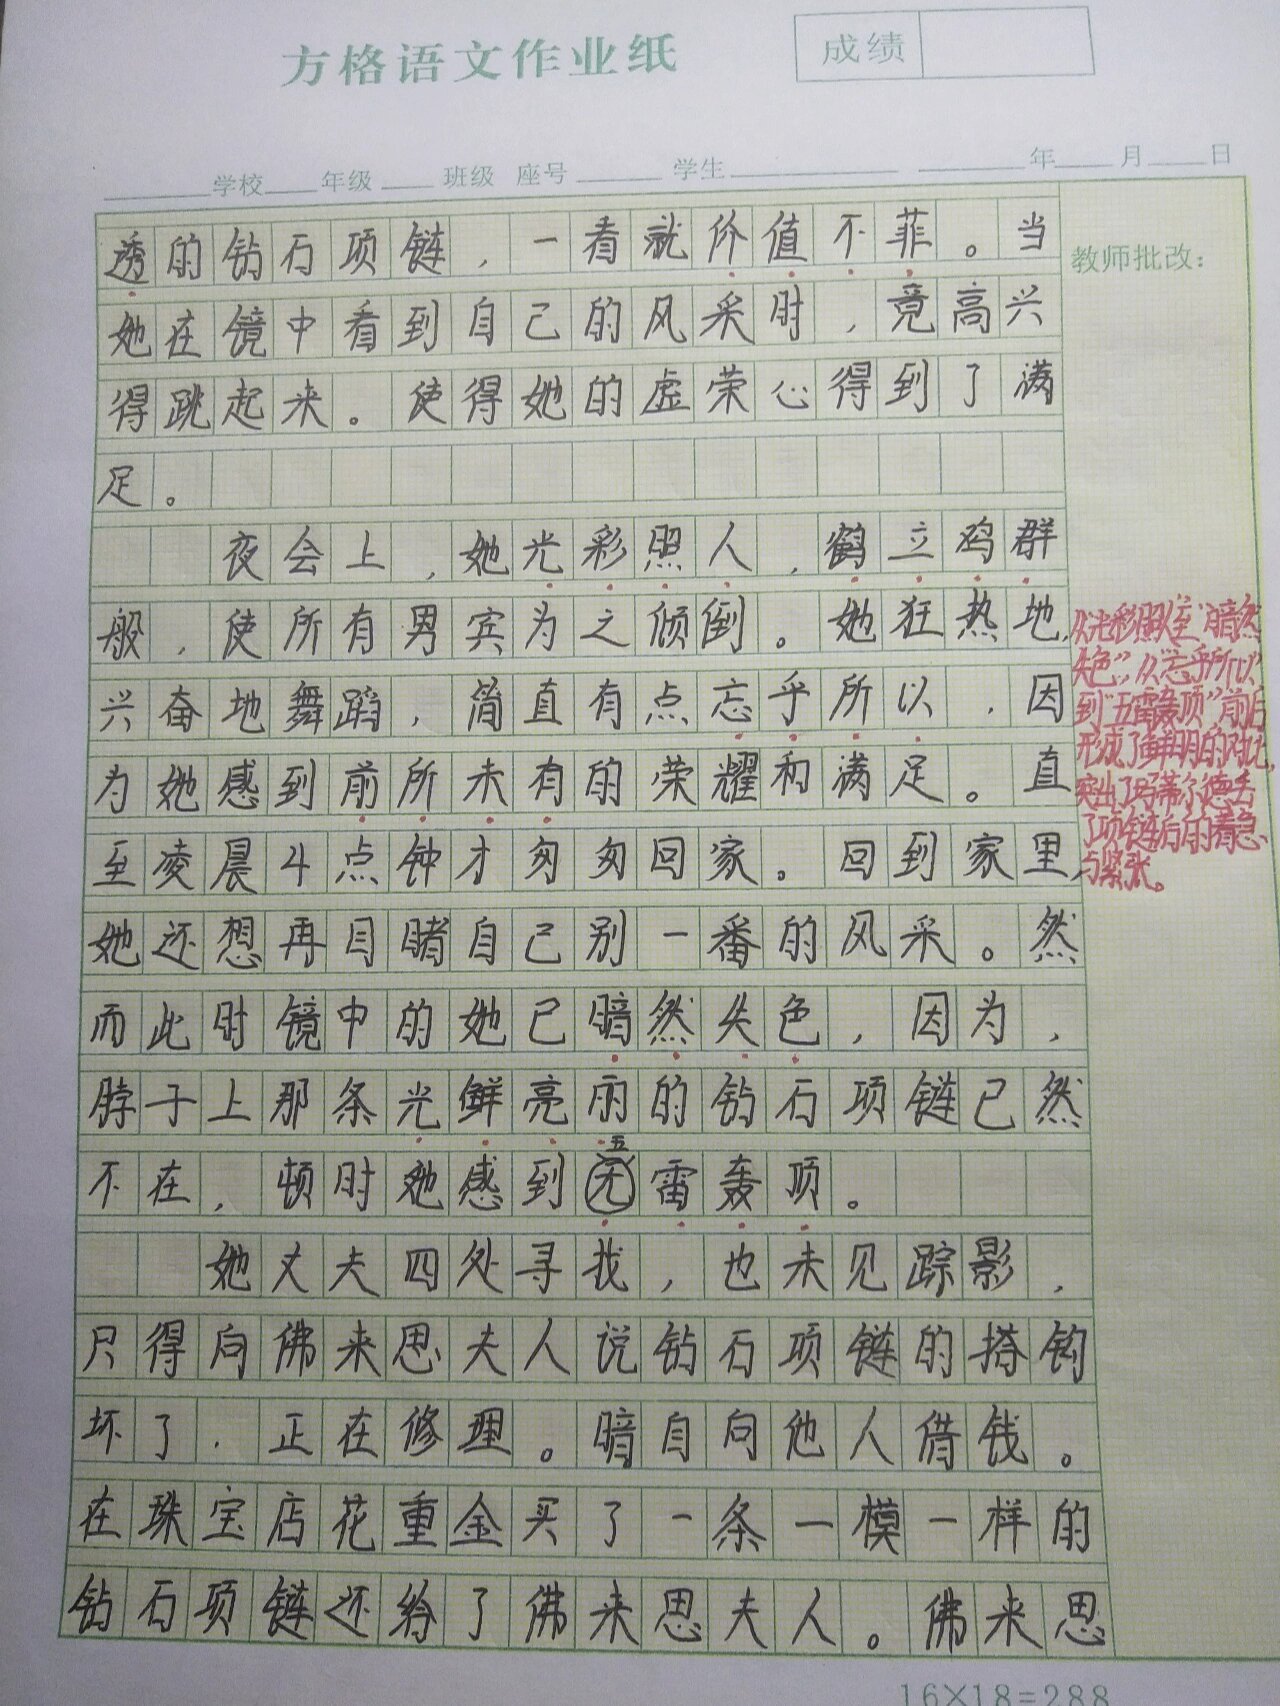 方格语文作业纸
成绩
学校 年级 班级 座号 学生 年 月 日
教师批改：
透的钻石项链，一看就价值不菲。当
她在镜中看到自己的风采时，竟高兴
得跳起来。使得她的虚荣心得到了满
足。
夜会上，她光彩照人，鹤立鸡群
般，使所有男宾为之倾倒。她狂热地，
兴奋地舞蹈，简直有点忘乎所以，因
为她感到前所未有的荣耀和满足。直
至凌晨4点钟才匆匆回家。回到家里，
她还想再目睹自己别一番的风采。然
而此时镜中的她已暗然失色，因为，
脖子上那条光鲜亮丽的钻石项链已然
五
不在，顿时她感到无雷轰顶。
她丈夫四处寻找，也未见踪影，
只得向佛来思夫人说钻石项链的搭钩
坏了，正在修理。暗自向他人借钱。
在珠宝店花重金买了一条一模一样的
钻石项链还给了佛来思夫人。佛来思
从光彩照人至"暗然
失色"，从"忘乎所以"
到"五雷轰顶"前后
形成了鲜明的对比，
突出了玛蒂尔德丢
了项链后的着急
与紧张。
16×18=288